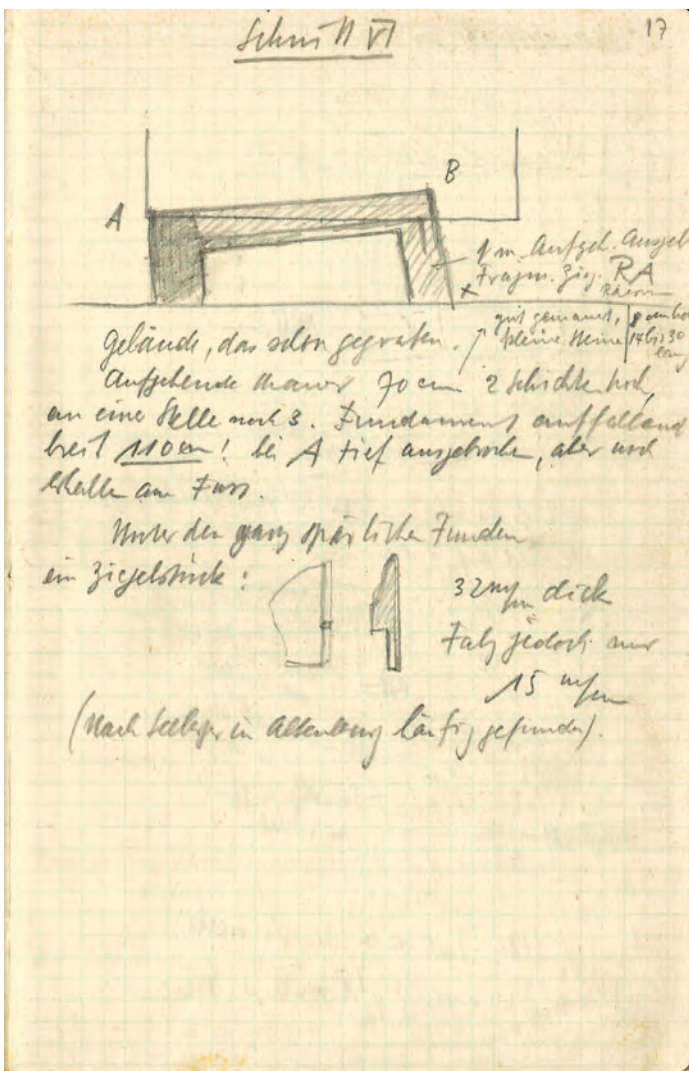 17
Schnitt VI
A
B
1 m. Aufgeh. Ausgeb
Fragm. Zieg. RA
gut gemauert, 8 cm hoch
kleine Steine 14 bis 30
lang
Gelände, das schon gegraben.
Aufgehende Mauer 70 cm 2 Schichten hoch,
an einer Stelle noch 3. Fundament auffallend
breit 110 cm! bei A tief ausgebrochen, aber noch
erhalten am Fuss.
Unter den ganz spärlichen Funden
ein Ziegelstück:
32 m/m dick
Falz jedoch nur
15 m/m
(Nach in Altenburg häufig gefunden).